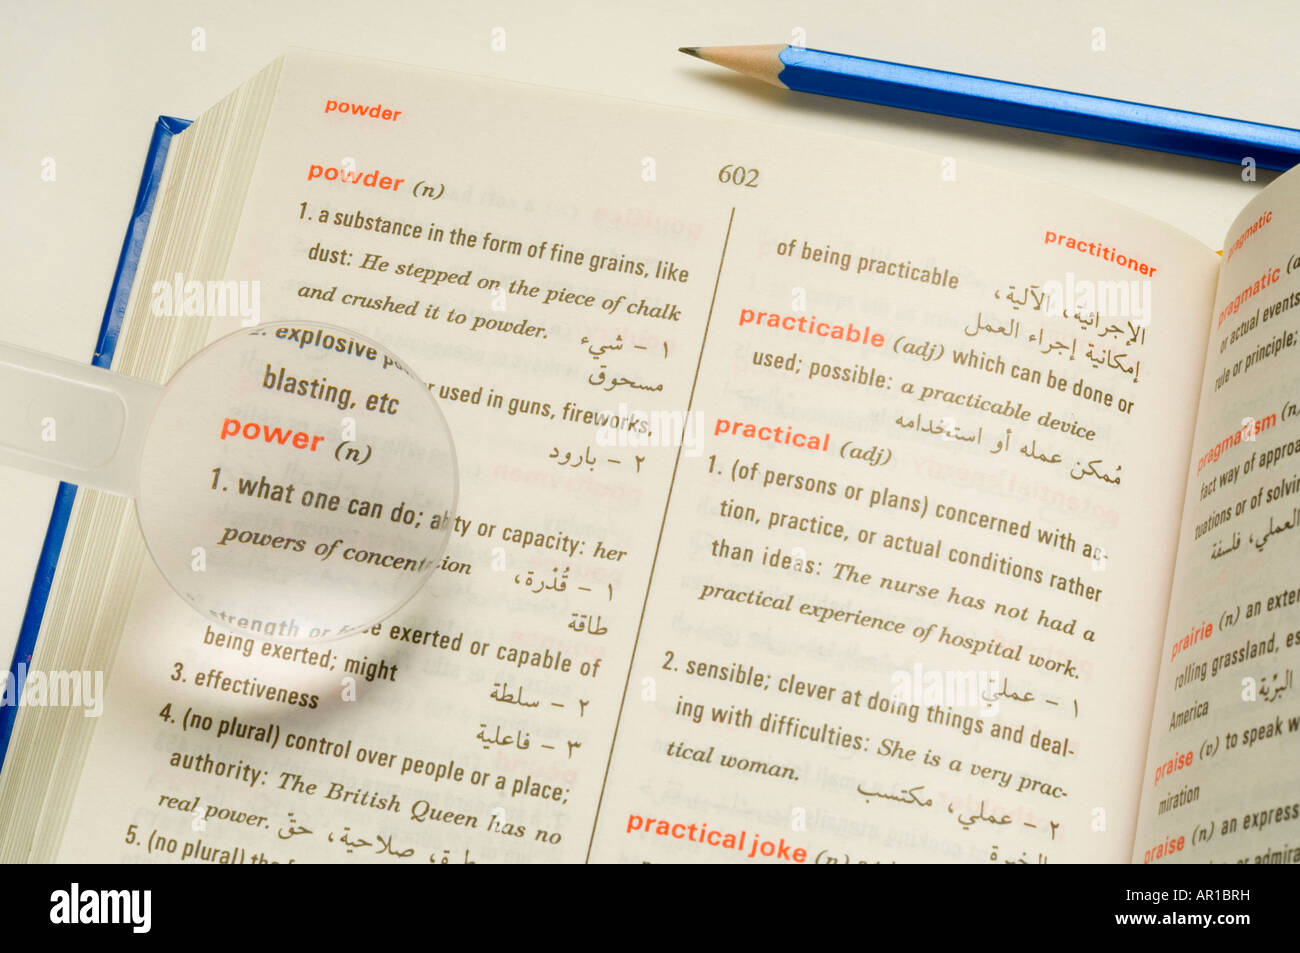 powder
602
practitioner
powder (n)
1. a substance in the form of fine grains, like
dust: He stepped on the piece of chalk
and crushed it to powder.
١ – شيء
مسحوق
2. explosive used in guns, fireworks,
blasting, etc
٢ – بارود
power (n)
1. what one can do; ty or capacity: her
powers of concent sion
١ – قُدْرة،
طاقة
strength or exerted or capable of
being exerted; might
٢ – سلطة
3. effectiveness
٣ – فاعلية
4. (no plural) control over people or a place;
authority: The British Queen has no
real power.
صلاحية، حقّ
5. (no plural) the
of being practicable
الإجرائية، الآلية،
إمكانية إجراء العمل
practicable (adj) which can be done or
used; possible: a practicable device
مُمكن عمله أو استخدامه
practical (adj)
1. (of persons or plans) concerned with ac-
tion, practice, or actual conditions rather
than ideas: The nurse has not had a
practical experience of hospital work.
١ – عمليّ
2. sensible; clever at doing things and deal-
ing with difficulties: She is a very prac-
tical woman.
٢ – عملي، مكتسب
الخبرة
practical joke (n)
pragmatic
pragmatic (a
or actual events
rule or principle;
pragmatism (n,
fact way of approa
tuations or of solvin
العملي، فلسفة
prairie (n) an exten
rolling grassland, es
America
البرّية
praise (v) to speak w
miration
praise (n) an express
or admira
alamy
Image ID: AR1BRH
www.alamy.com